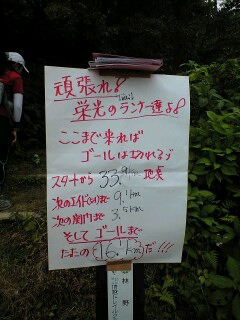 頑張れ!
栄光のランナー達よ!
ここまで来れば
ゴールは切れるゾ
スタートから33.9km地点
次のエイドまで9.1km
次の関門まで3.5km
そしてゴールまで
たったの16.1kmだ!!!
林野